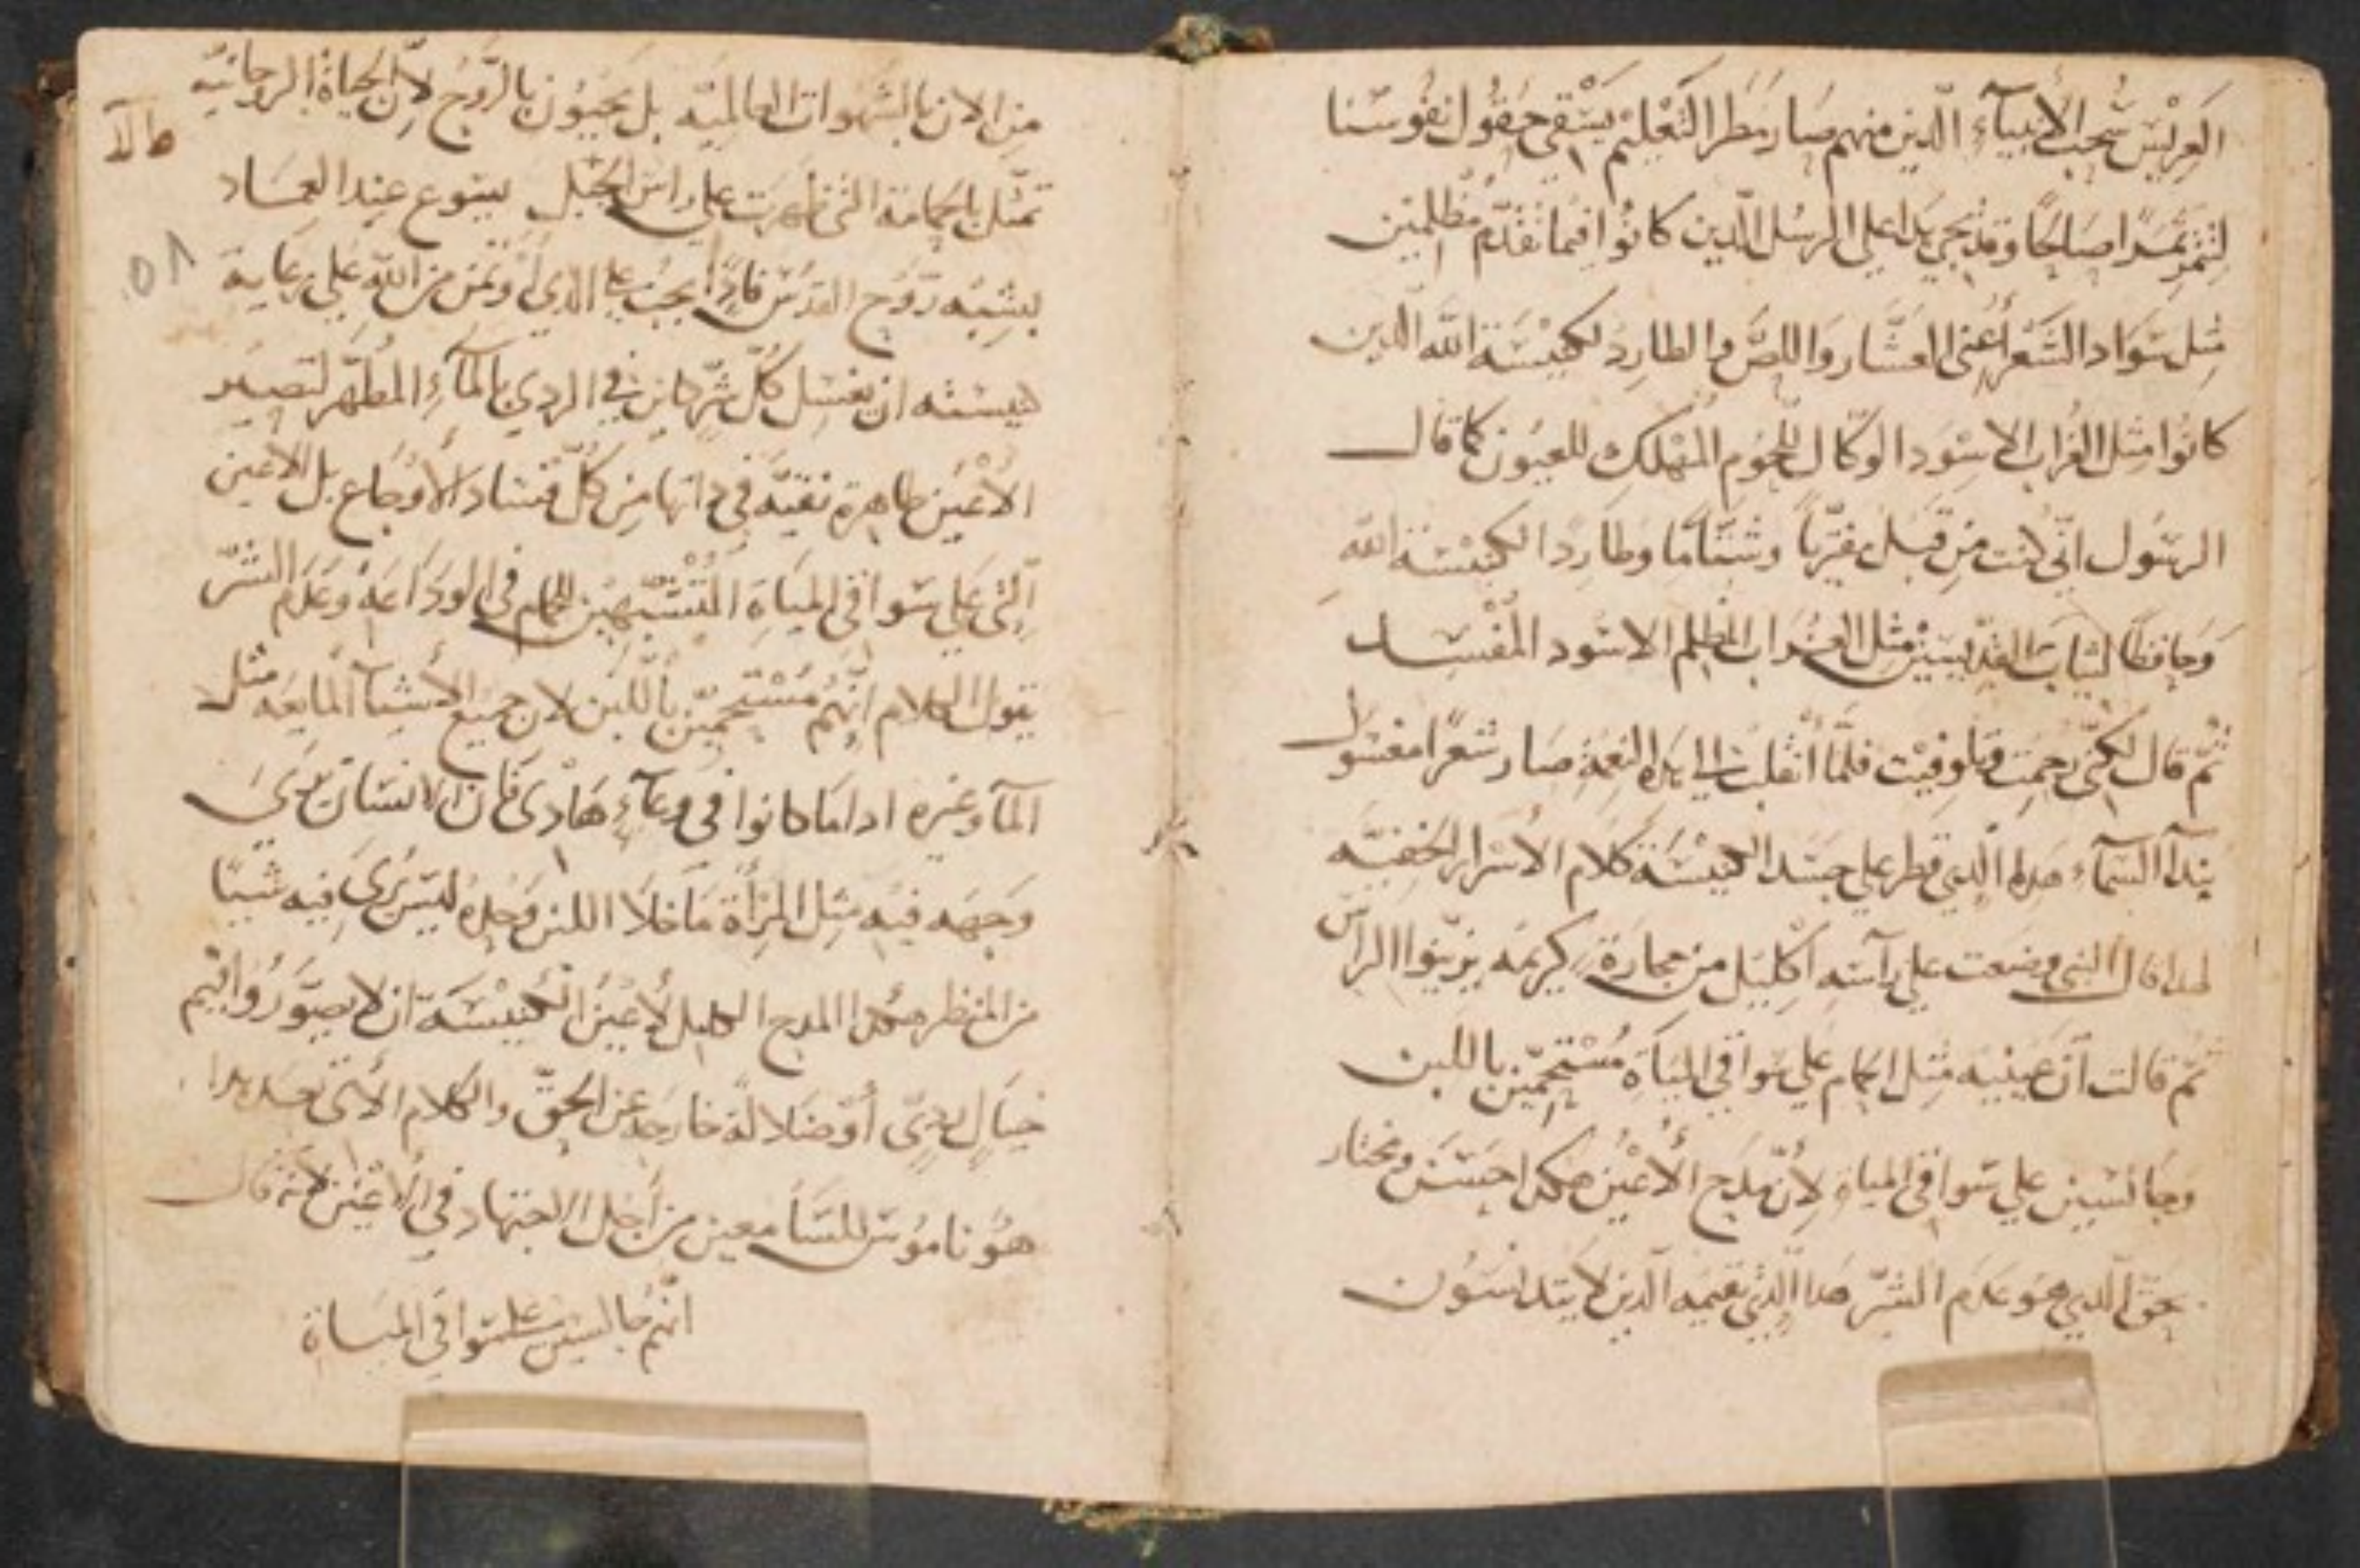 العريس سُحب الأنبياء الّذين منهم صار مطر التعليم يسقي حقول نفوسنا
لتثمر ثمرًا صالحًا وقد يجي هذا علي الرسل الّذين كانوا فيما تقدّم مظلمين
مثل سواد الشعر أعني العشّار واللصّ والطارد لكنيسة الله الذين
كانوا مثل الغراب الاسود الوكّال اللحوم المهلك للعيون كما قال
الرسول انّي كنت من قبل مفتريًا وشتّامًا وطاردًا لكنيسة الله
وحافظًا لثياب القديسين مثل الغراب المظلم الاسود المفسد
ثمّ قال لكنّي رحمت وقلوفيت فلمّا أنقلب الي هذه النعمة صار شعرًا مغسول
بندآ السمآء هذا الّذي قطر علي جسد الكنيسة كلام الأسرار الخفيّه
لهذا قال النبي وضعت علي رآسه اكليل من حجارة كريمه يزيّنوا الرآس
ثمّ قالت أن عينيه مثل الحمام علي سواقي المياة مُستحمّين باللبن
وجالسين علي سواقي المياه لأن مدح الأعين هكذا حسن ومختار
بحقّ الّذي هو عدم الشرّ هذا الّذي تقيمه الّذين لا يتدنسون
من الان بالشهوات العالميّه بل يحيون بالرّوح لأن الحياة الروحانيّه
تمثّل بالحمامة الّتي ظهرت علي رأس الجبل يسوع عند العماد
بشبه روح القدس فاذًا يجب علي الذي أوتمن من الله علي رعاية
كنيسته ان يغسل كلّ شرّ كاين في الردي بالمآءِ المطهّر لتصير
الأعين طاهرة نقيّة في ذاتها من كلّ فساد الأوجاع بل الأعين
الّتي علي سواقي المياه المتشبّهين بالحمام في الوداعة وعدم الشرّ
يقول الكلام انّهم مُستحمّين باللبن لان جميع الأشيآ المايعه مثل
المآ وغيره اذا ما كانوا في وعآءٍ هادي فان الانسان يري
وجهه فيه مثل المرأة ما خلا اللبن وحده ليس يُري فيه شيئًا
من المنظر هكذا المدح الكامل لأعين الكنيسة ان لا يصوّروا فيهم
خيالٍ رديّ أو ضلالة خارجة عن الحقّ والكلام الأتي بعد هذا
هو ناموس للسامعين من أجل الاجتهاد في الأعين لأنه قال
انّهم جالسين علي سواقي المياة